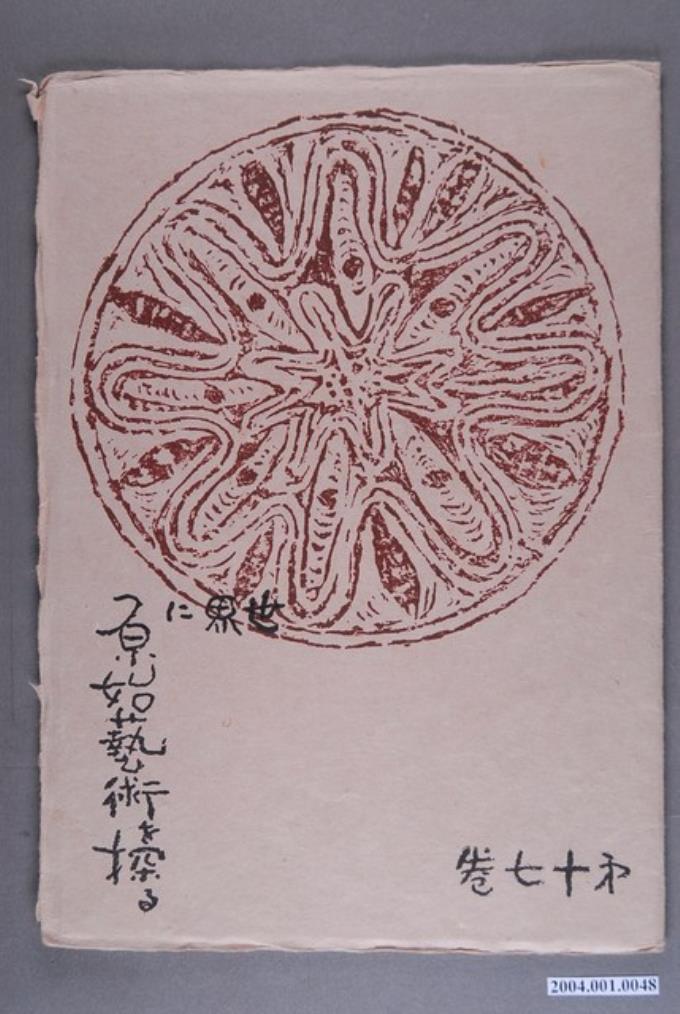 世界に
原始藝術を探る
第十七卷
2004.001.0048